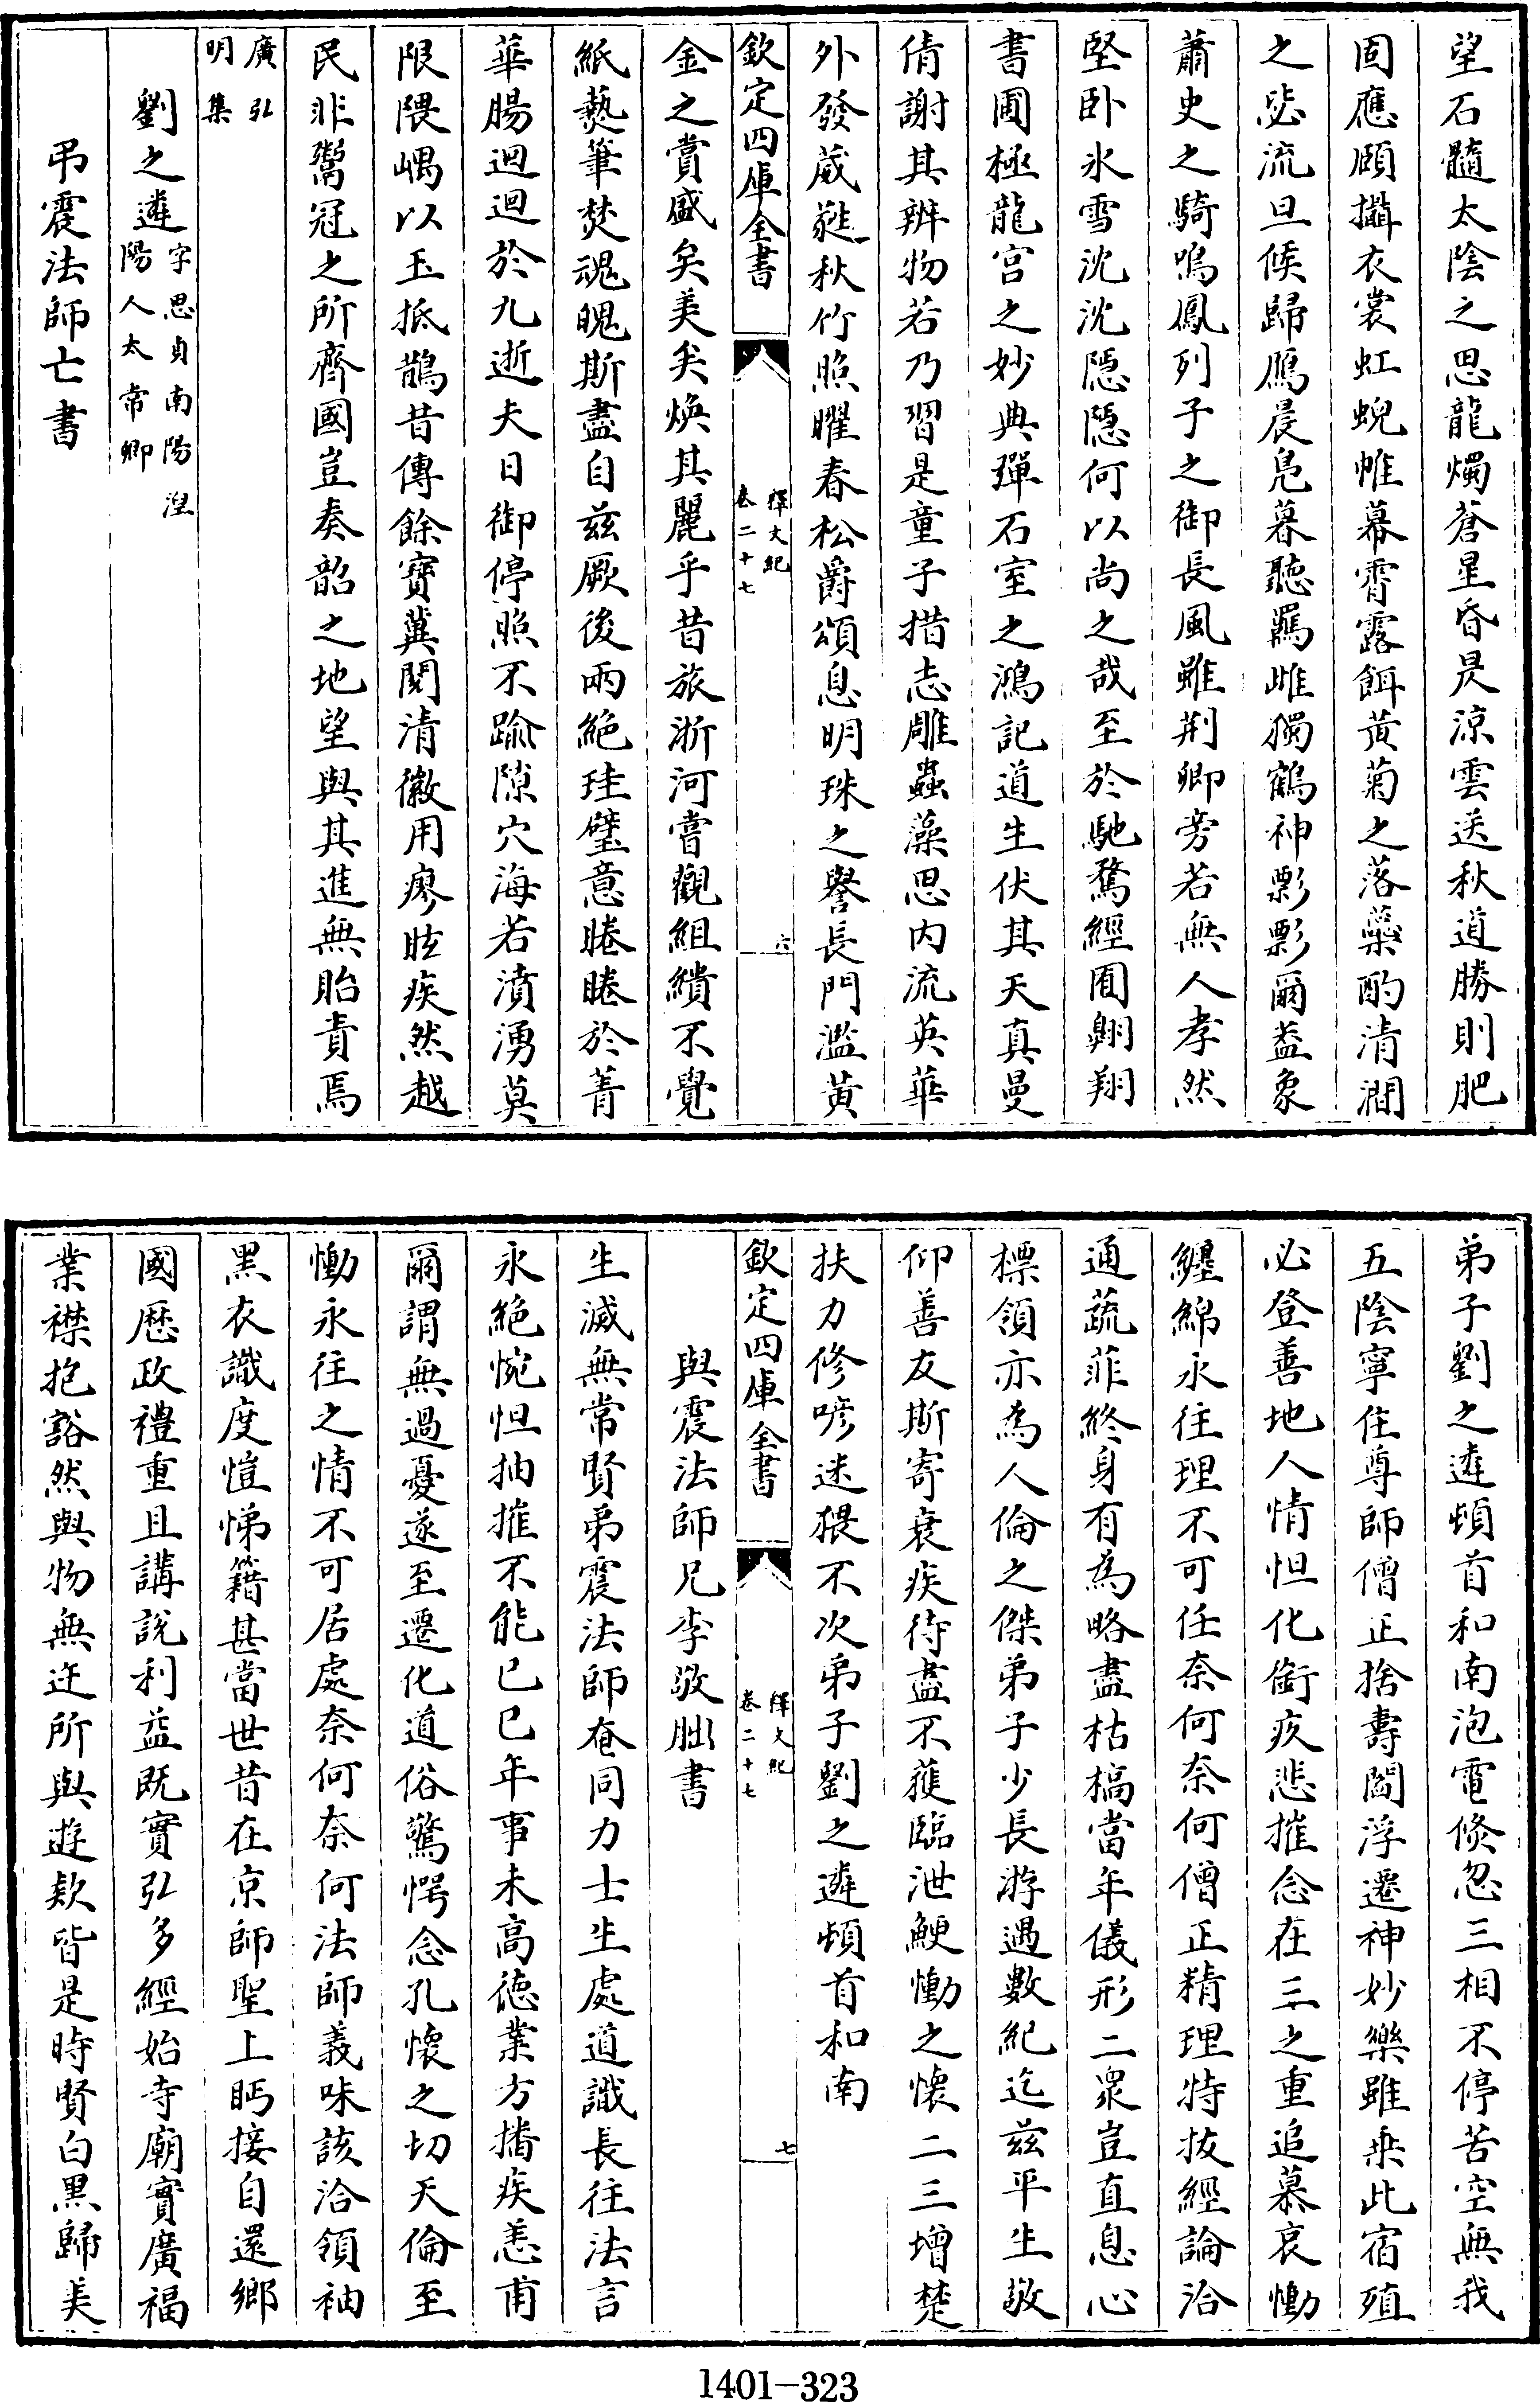 望石髓太陰之思龍燭蒼星昏昃涼雲送秋道勝則肥
固應頤攝衣裳虹蜺帷幕霄露餌黃菊之落蘂酌清澗
之毖流旦候歸鴈晨鳧暮聽羈雌獨鶴神飄飄爾盖象
蕭史之騎鳴鳳列子之御長風雖荆卿旁若無人孝然
堅卧氷雪沈沈隱隱何以尚之哉至於馳騖經囿翺翔
書圃極龍宮之妙典殫石室之鴻記道生伏其天真曼
倩謝其辨物若乃習是童子措志雕蟲藻思内流英華
外發葳蕤秋竹照曜春松爵頌息明珠之譽長門濫黃
欽定四庫全書
釋文紀
卷二十七
六
金之賞盛矣美矣煥其麗乎昔旅浙河嘗觀組繢不覺
紙爇筆焚魂魄斯盡自兹厥後兩絶珪璧意睠睠於菁
華腸迴迴於九逝夫日御停照不踰隙穴海若濆湧莫
限隈嵎以玉抵鵲昔傳餘寶冀聞清徽用瘳眩疾然越
民非鬻冠之所齊國豈奏韶之地望與其進無貽責焉
廣弘
明集
劉之遴字思貞南陽湼
陽人太常卿
弔震法師亡書
弟子劉之遴頓首和南泡電倐忽三相不停苦空無我
五陰寧住尊師僧正捨壽閻浮遷神妙樂雖乗此宿殖
必登善地人情怛化銜疚悲摧念在三之重追慕哀慟
纏綿永往理不可任奈何奈何僧正精理特抜經論洽
通蔬菲終身有為略盡枯槁當年儀形二衆豈直息心
標領亦為人倫之傑弟子少長游遇數紀迄兹平生敬
仰善友斯寄衰疾待盡不獲臨泄鯁慟之懷二三增楚
扶力修唁迷猥不次弟子劉之遴頓首和南
欽定四庫全書
釋文紀
卷二十七
七
與震法師兄李敬朏書
生滅無常賢弟震法師奄同力士生處道識長往法言
永絶惋怛抽摧不能已已年事未高德業方播疾恙甫
爾謂無過憂遂至遷化道俗驚愕念孔懷之切天倫至
慟永往之情不可居處奈何奈何法師義味該洽領袖
黑衣識度愷悌籍甚當世昔在京師聖上眄接自還鄉
國歴政禮重且講説利益既實弘多經始寺廟實廣福
業襟抱豁然與物無迕所與遊欵皆是時賢白黑歸美
1401-323